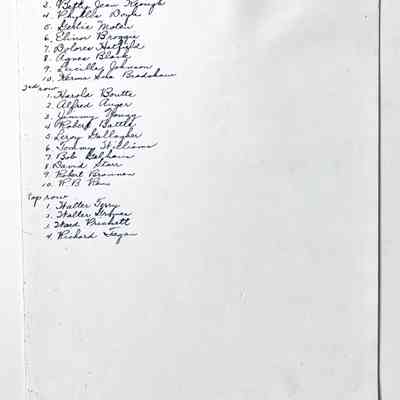 3. Betty Jean Keough
4. Phyllis Doyle
5. Stella Moten
6. Elinor Broggi
7. Dolores Hatfield
8. Agnes Black
9. Lucille Johnson
10. Norma Sue Bradshaw
3rd row
1. Harold Boutte
2. Alfred Auger
3. Jimmy
4. Robert Battle
5. Leroy Gallagher
6. Tommy Williams
7. Bob
8. David Starr
9. Robert
10. W.B.
Top row
1. Walter Terry
2. Walter
3. Ward Prichett
4. Richard